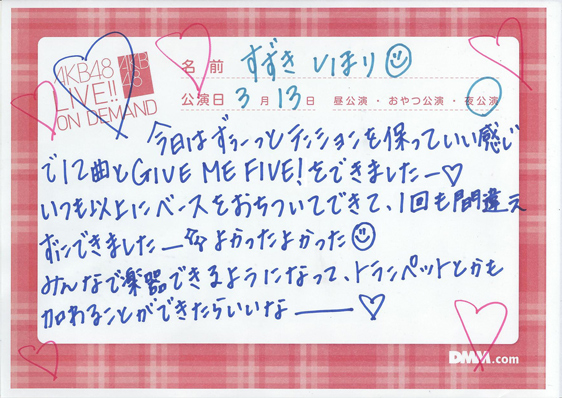 AKB48
LIVE!!
ON DEMAND
AKB
48
名前 すずき しほり
公演日 3月13日 昼公演・おやつ公演・夜公演
今日はずぅーっとテンションを保っていい感じ
で12曲とGIVE ME FIVE!をできましたー♡
いつも以上にベースをおちついてできて、1回も間違え
ずにできましたー よかったよかった☺
みんなで楽器できるようになって、トランペットとかも
加わることができたらいいなー♡
DMM.com